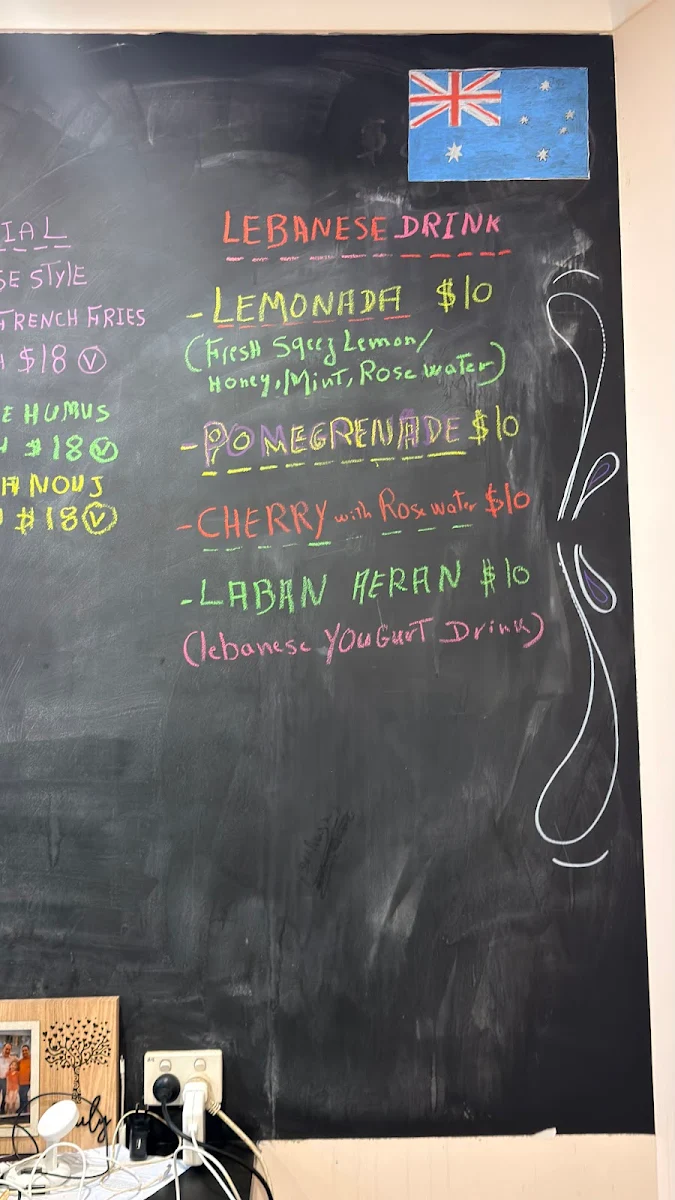 IAL
SE STYLE
FRENCH FRIES
$18 V
E HUMUS
$18 V
A NOUJ
$18 V
LEBANESE DRINK
- LEMONADA $10
(Fresh Sqeez Lemon/
Honey,/Mint, Rose water)
- POMEGRENADE $10
- CHERRY with Rose water $10
- LABAN AERAN $10
(lebanese YOuGurT Drink)